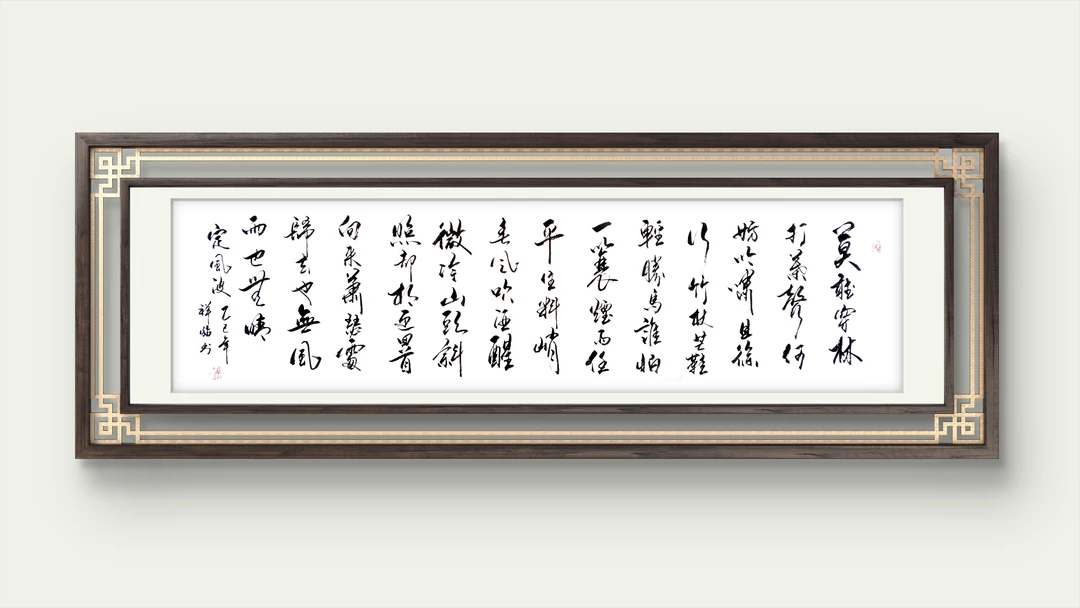 莫聽穿林
打葉聲何
妨吟嘯且徐
行竹杖芒鞋
輕勝馬誰怕
一蓑煙雨任
平生料峭
春風吹酒醒
微冷山頭斜
照却相迎回首
向來蕭瑟處
歸去也無風
雨也無晴
定風波 乙巳年
祥臨书